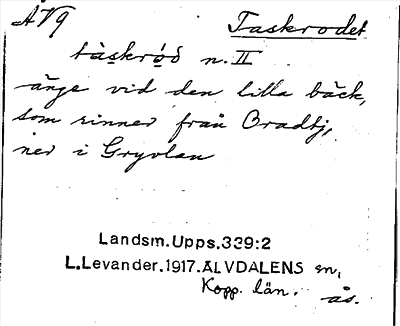 ÄVg Taskrodet
tàskrǫ́d n. II
änge vid den lilla bäck,
som rinner från Bradtj,
ner i Gryvlan
Landsm.Upps.339:2
L.Levander.1917.ÄLVDALENS sn,
Kopp. län. ås.